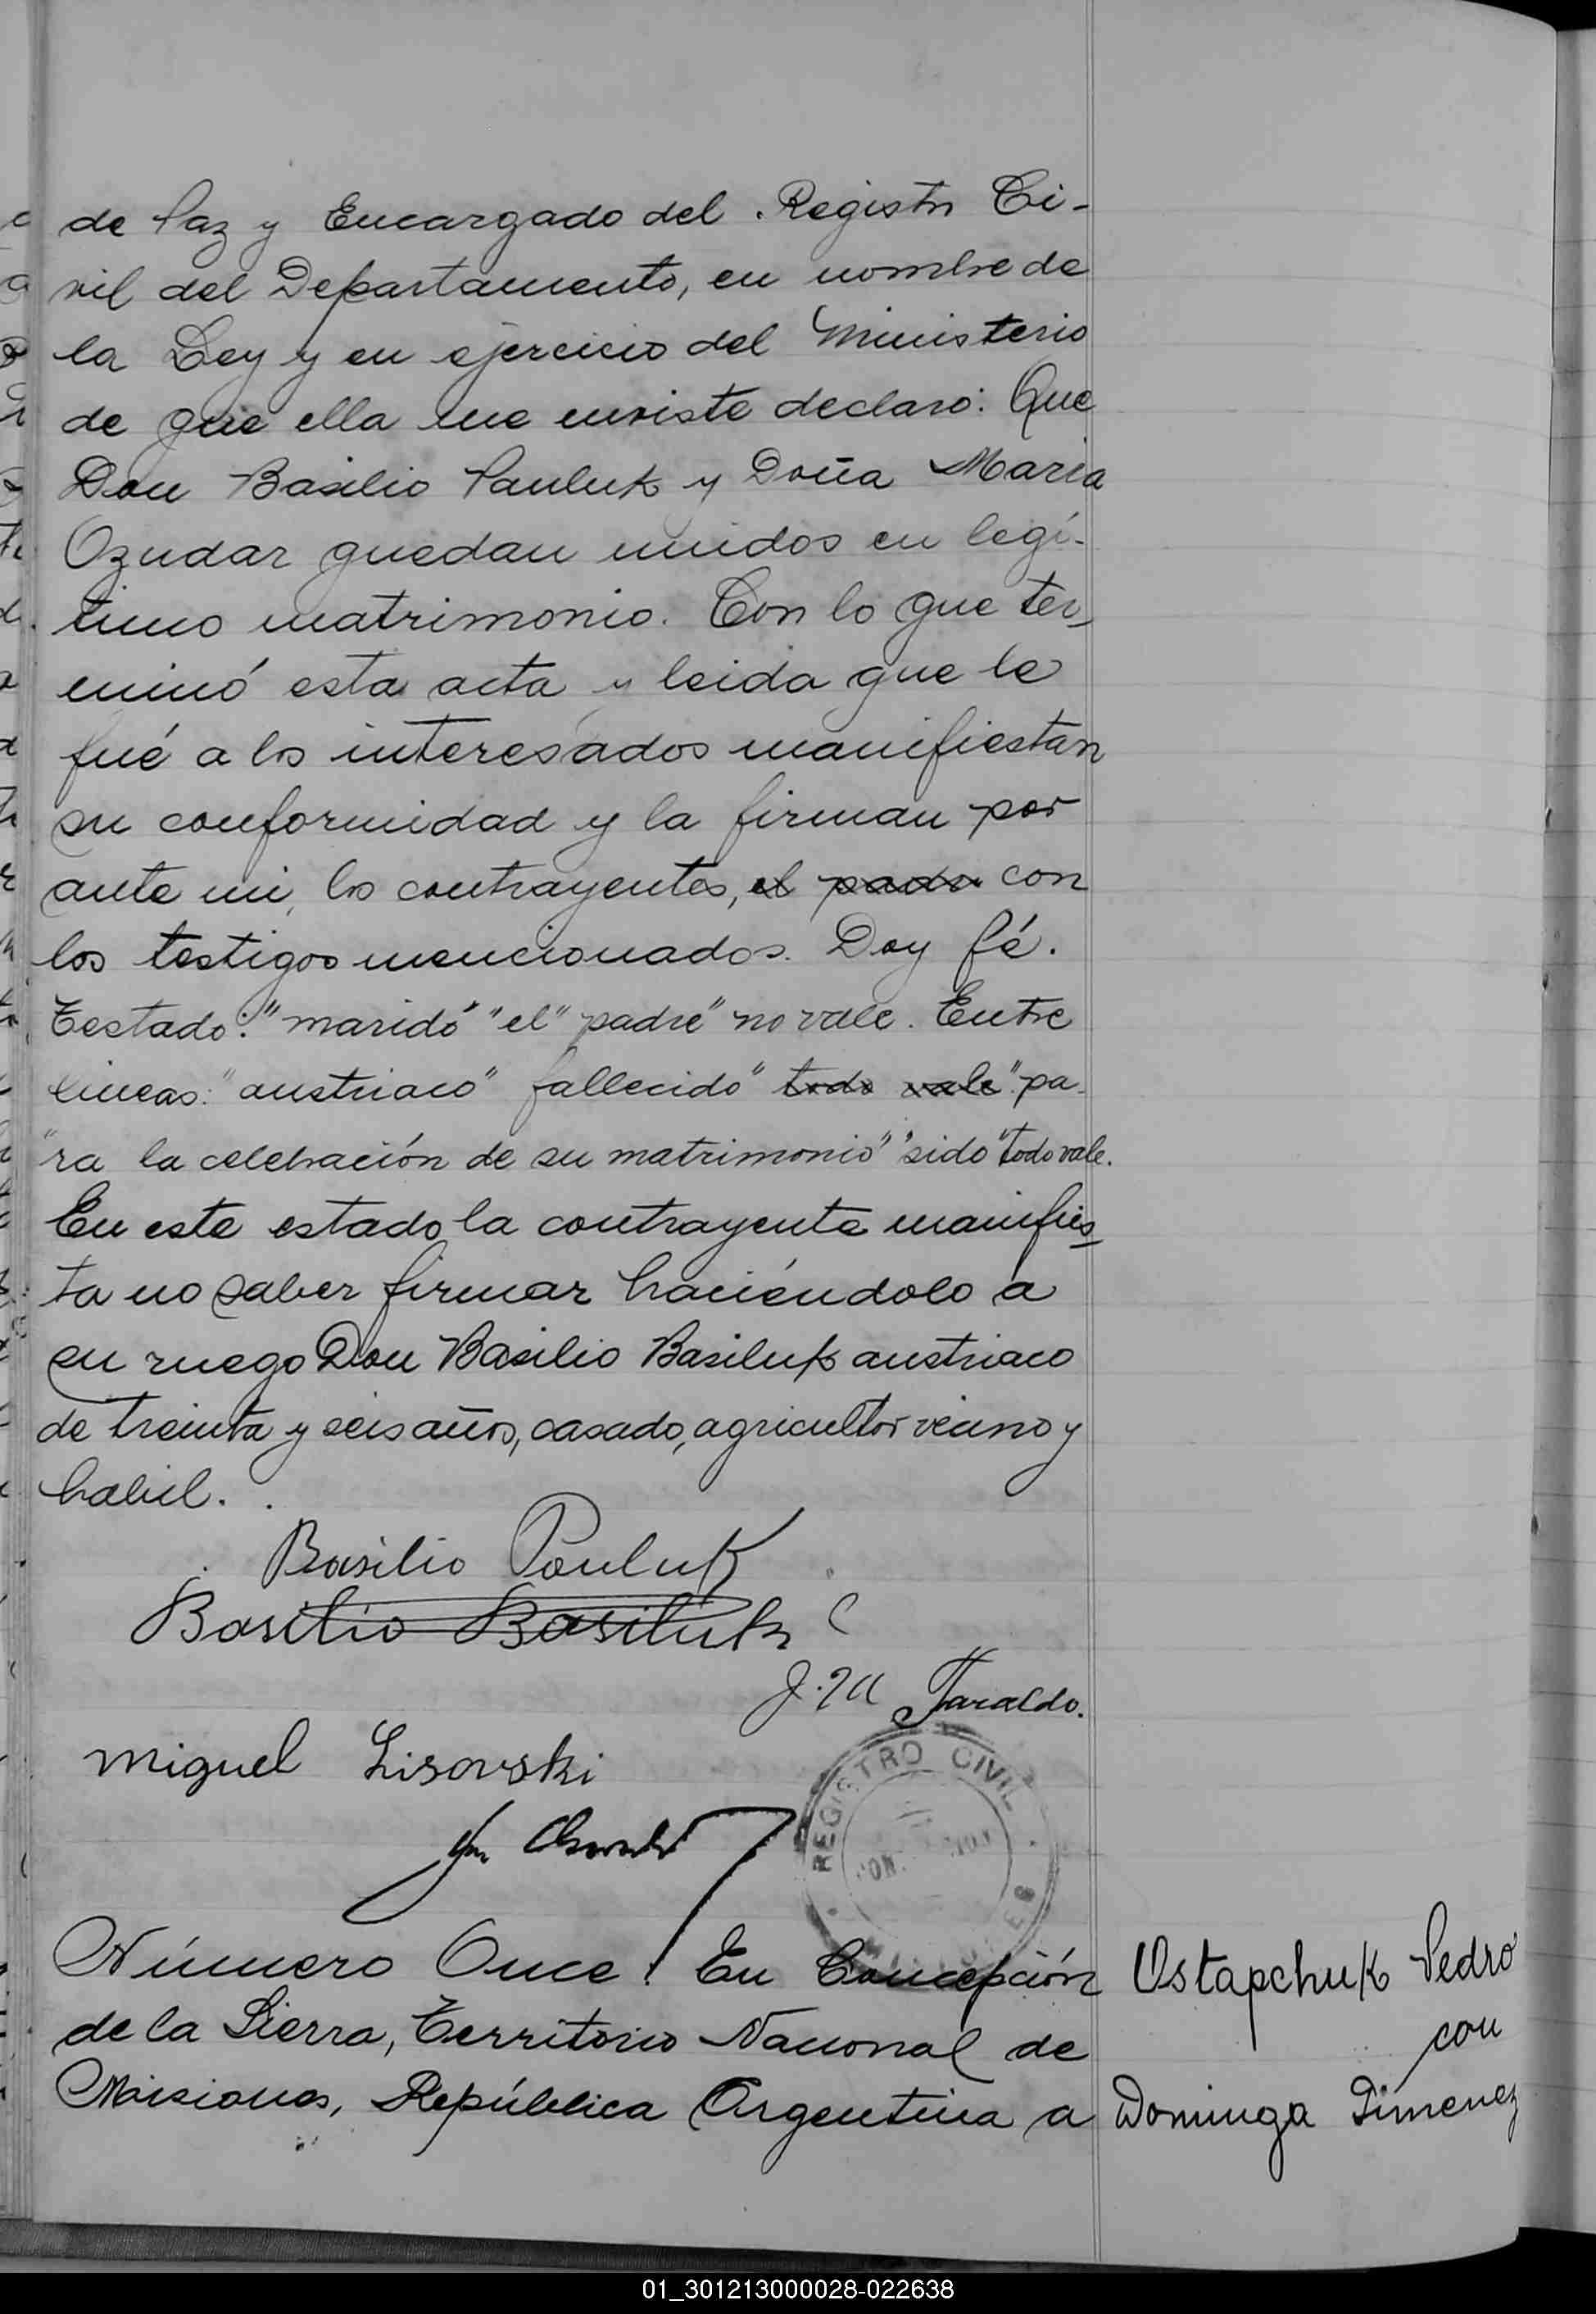 de Paz y Encargado del Registro Ci-
vil del Departamento, en nombre de
la Ley y en ejercicio del Ministerio
de que ella me enviste declaro: Que
Don Basilio Pauluk y Doña Maria
Ozudar quedan unidos en legi-
timo matrimonio. Con lo que ter-
minó esta acta y leida que le
fué a los interesados manifiestan
su conformidad y la firman por
ante mi, los contrayentes, el padre con
los testigos mencionados. Doy fé.
Testado: "marido" "el" "padre" no vale. Entre
lineas: "austriaco" fallecido" todo vale" "pa-
"ra la celebración de su matrimonio" "sido" todo vale.
En este estado la contrayente manifies-
ta no saber firmar haciéndolo a
su ruego Don Basilio Basiluk austriaco
de treinta y seis años, casado, agricultor vecino y
habil.
Basilio Pauluk
Basilio Basiluk
Taraldo.
Miguel Lisovski
REGISTRO CIVIL
Número Once: En Concepción
de la Sierra, Territorio Nacional de
Misiones, República Argentina a
Ostapchuk Pedro
con
Dominga Jimenez
01_301213000028-022638